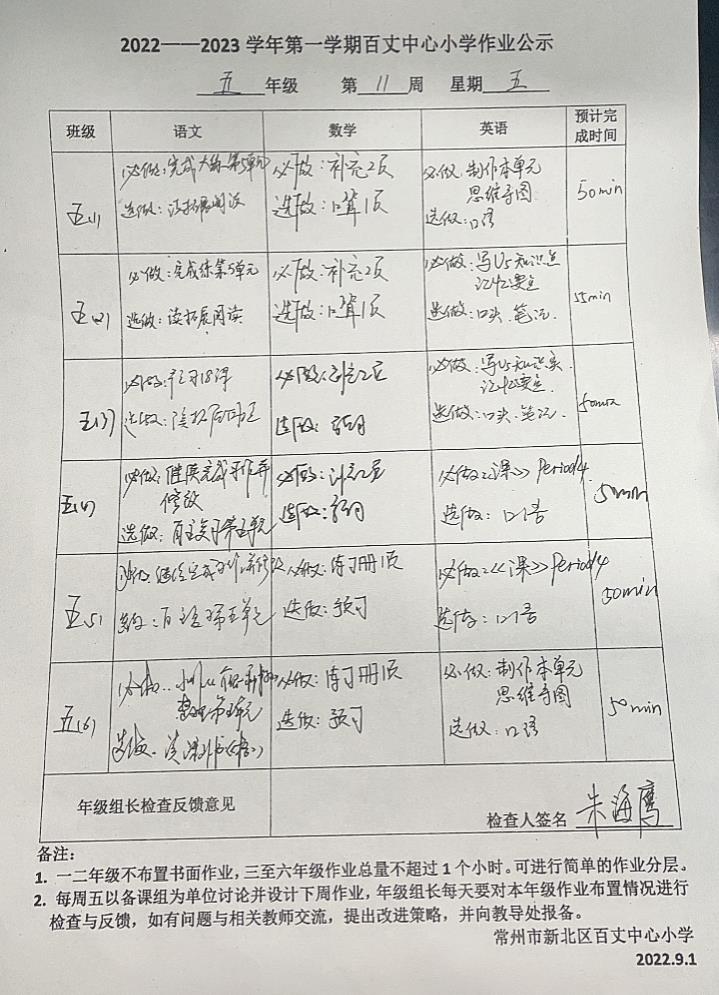 2022——2023 学年第一学期百丈中心小学作业公示
五 年级 第 11 周 星期 五
班级 语文 数学 英语 预计完成时间
五(1)
必做:完成大练第5单元
选做:读拓展阅读
必做:补充2页
选做:口算1页
必做:制作本单元
思维导图
选做:口语
50min
五(2)
必做:完成练第5单元
选做:读拓展阅读
必做:补充2页
选做:口算1页
必做:写U5知识点
记忆要点
选做:口头.笔记.
55min
五(3)
必做:预习18课
选做:
必做:补充2页
选做:预习
必做:写U5知识点.
记忆要点.
选做:口头.笔记.
50min
五(4)
必做:继续完成习作并
修改
选做:自主复习第五单元
必做:补充2页
选做:预习
必做:《课》Period4
选做:口语
50min
五(5)
必做:继续完成习作并修改
选做:自主复习第五单元
必做:练习册1页
选做:预习
必做:《课》Period4
选做:口语
50min
五(6)
必做:
整理第五单元
选做:读课外书
必做:练习册1页
选做:预习
必做:制作本单元
思维导图
选做:口语
50min
年级组长检查反馈意见
检查人签名 朱海鹰
备注:
1. 一二年级不布置书面作业,三至六年级作业总量不超过 1 个小时。可进行简单的作业分层。
2. 每周五以备课组为单位讨论并设计下周作业,年级组长每天要对本年级作业布置情况进行
检查与反馈,如有问题与相关教师交流,提出改进策略,并向教导处报备。
常州市新北区百丈中心小学
2022.9.1